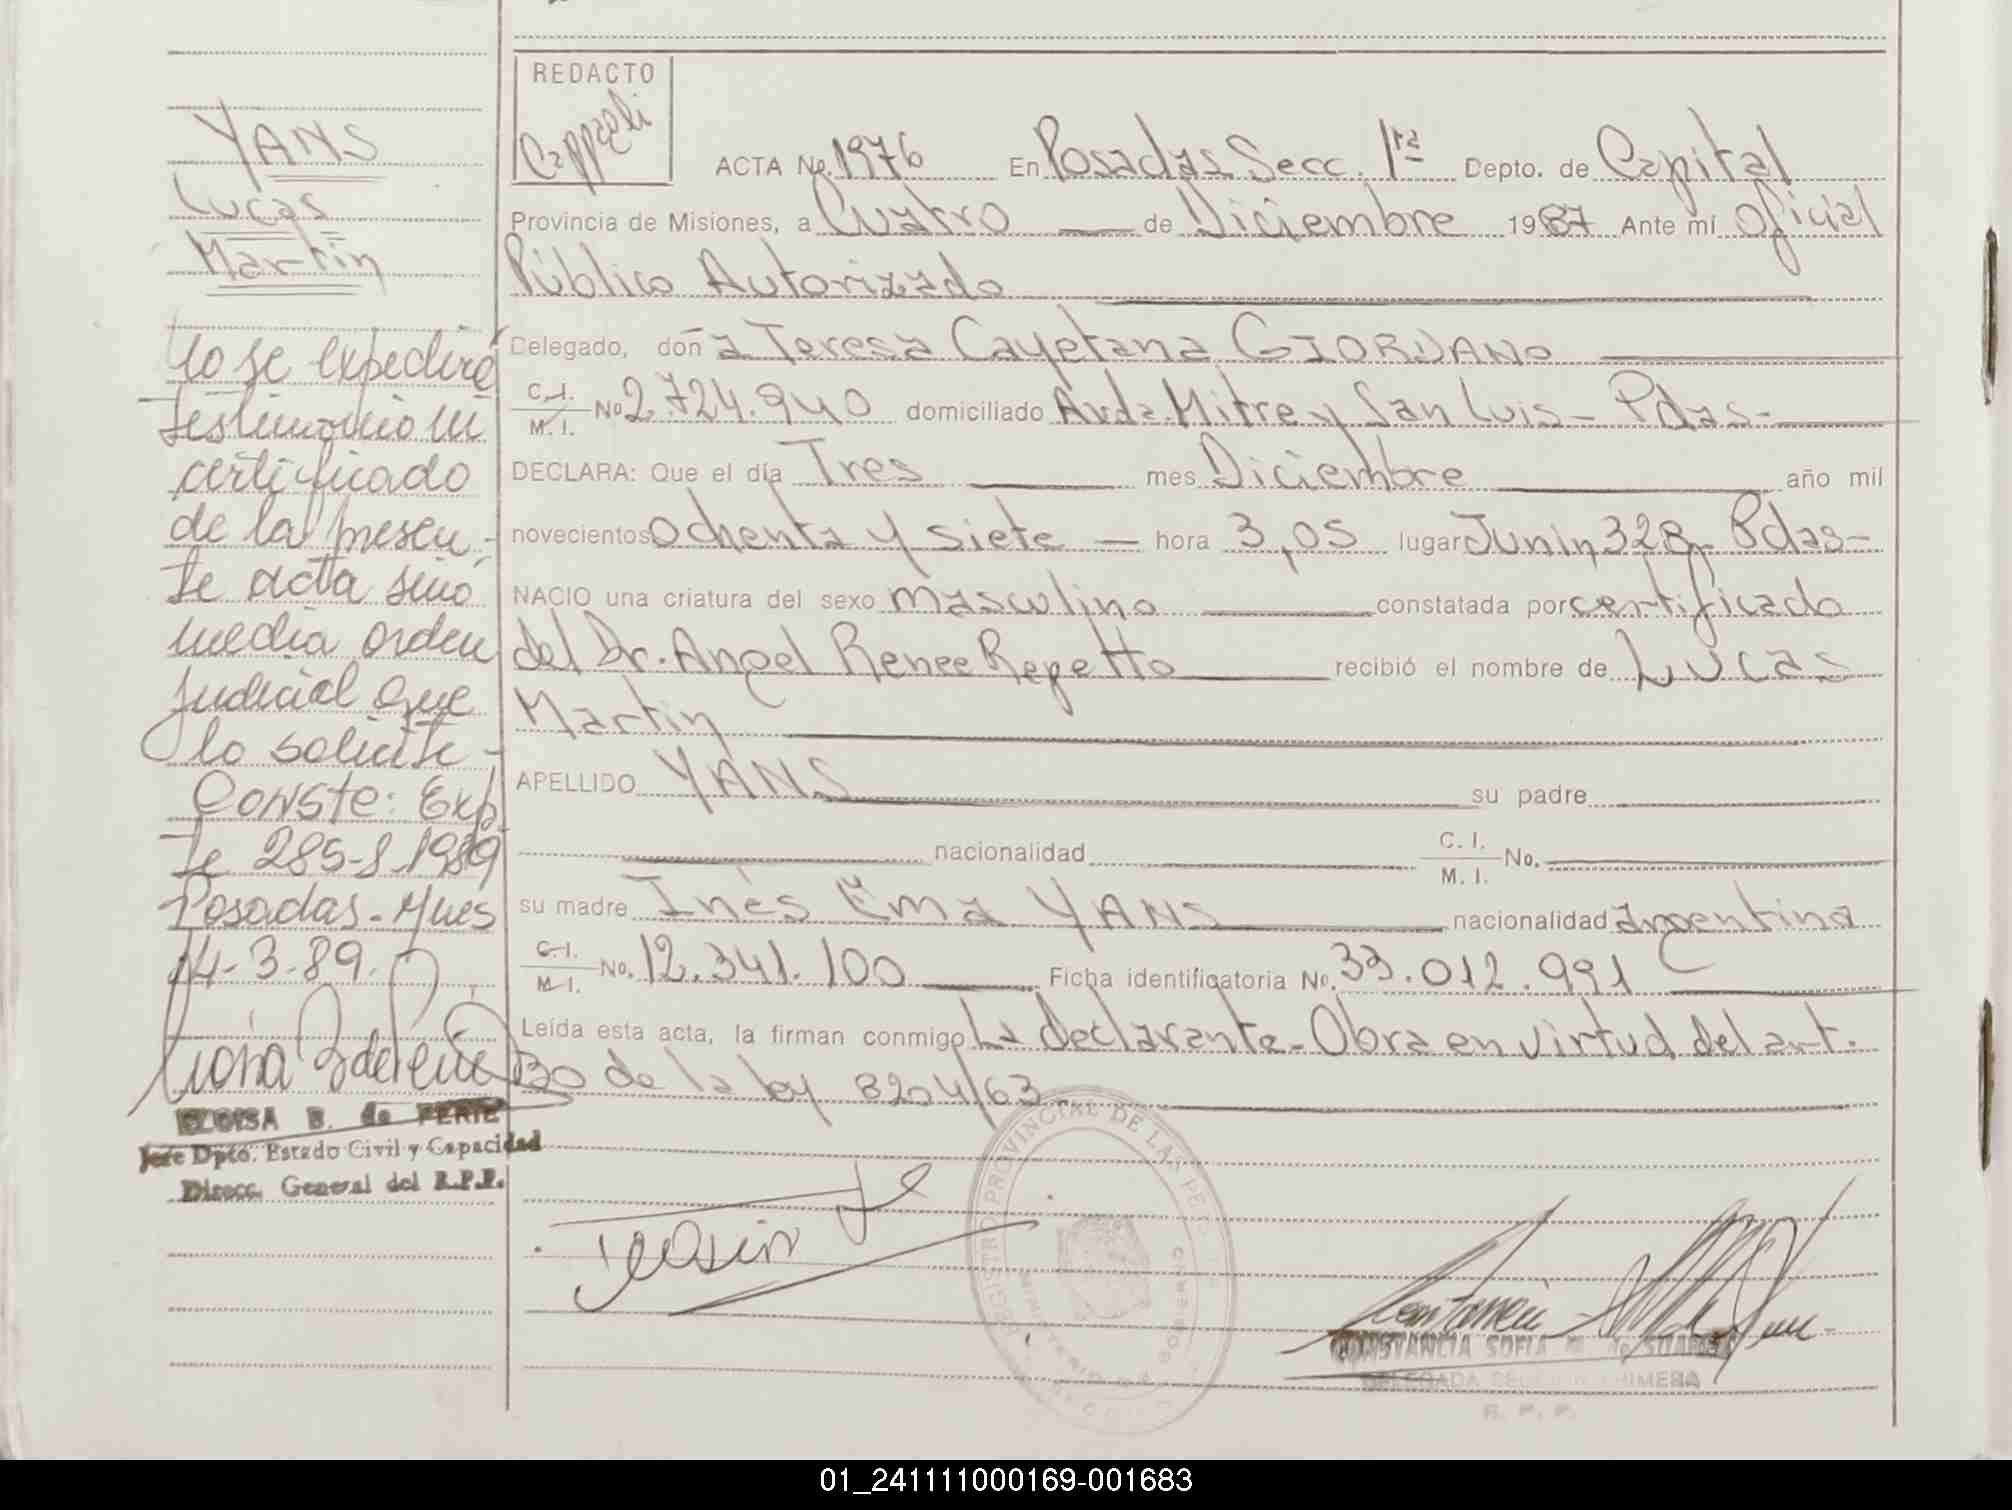 YANS
Lucas
Martin
No se expedirá
testimonio ni
certificado
de la presen-
te acta sino
media orden
judicial que
lo solicite-
Conste: Exp
te 285-S 1989
Posadas-Mnes
14-3-89.
ELOISA B. de FERIE
Jefe Dpto. Estado Civil y Capacidad
Direcc. General del R.P.P.
REDACTO
ACTA No. 1976 En Posadas Secc. 1ra Depto. de Capital
Provincia de Misiones, a Cuatro de Diciembre 1987 Ante mí Oficial
Público Autorizado
Delegado, don a Teresa Cayetana GIORDANO
C.I. M.I. No 2.724.940 domiciliado Avda. Mitre y San Luis - Pdas-
DECLARA: Que el día Tres mes Diciembre año mil
novecientos Ochenta y siete - hora 3,05 lugar Junín 328 - Pdas-
NACIO una criatura del sexo masculino constatada por certificado
del Dr. Angel Renee Repetto recibió el nombre de Lucas
Martin
APELLIDO YANS su padre
nacionalidad C. I. M. I. No.
su madre Inés Ema YANS nacionalidad argentina
C.I. M.I. No. 12.341.100 Ficha identificatoria No. 33.012.991
Leída esta acta, la firman conmigo La declarante - Obra en virtud del art.
30 de la ley 8204/63
REGISTRO PROVINCIAL DE LAS PERSONAS
CONSTANCIA SOFIA M. de SUAREZ
DELEGADA SECCION PRIMERA
R. P. P.
01_241111000169-001683